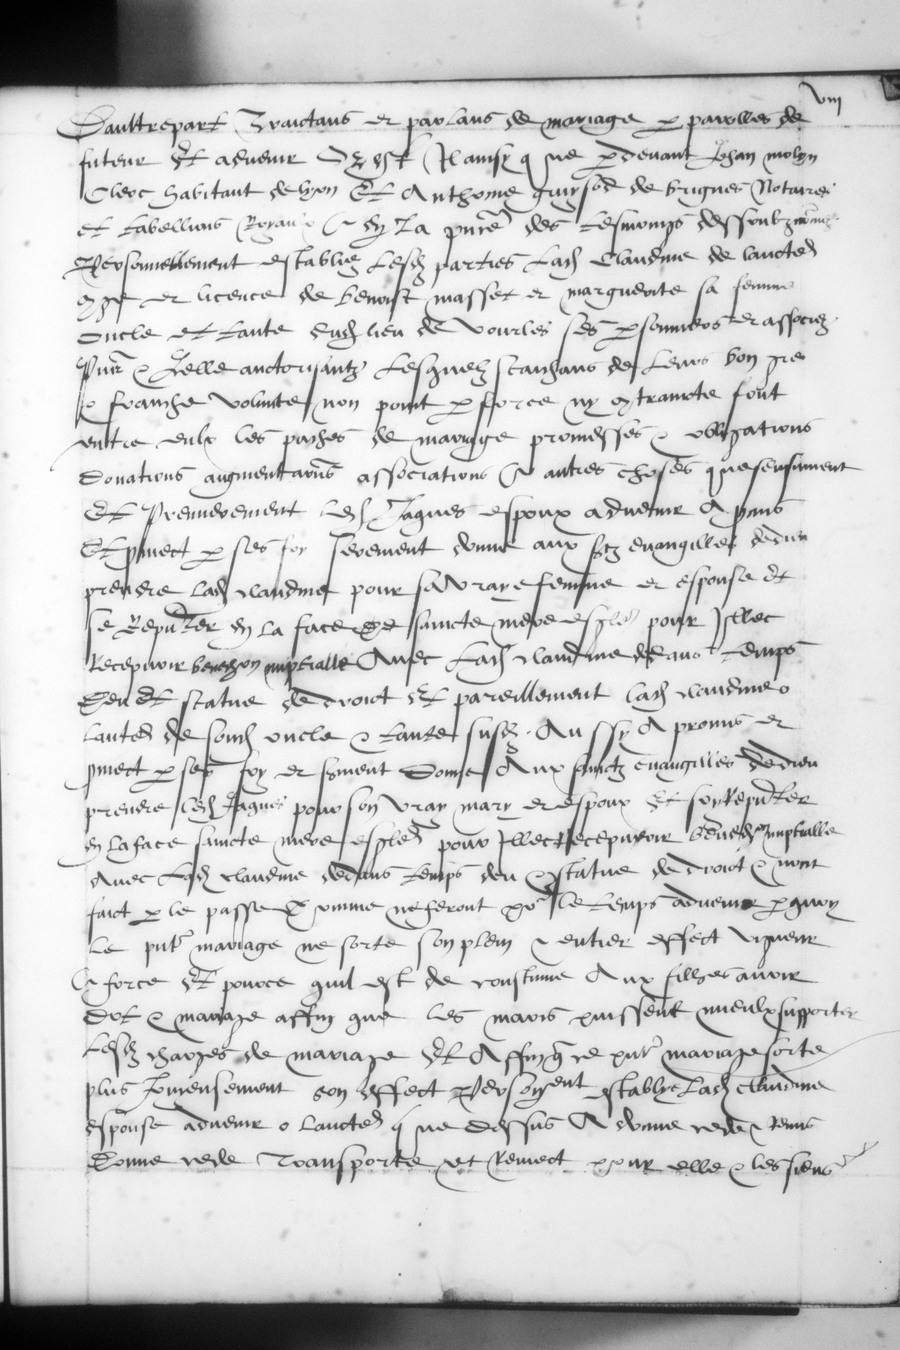 viii
Daultrepart Traictans et parlans de mariage p parolles de
futeur Et advenir Or est Il ainsy q ne pdevant Jehan molyn
Clerc habitant de lyon Et Anthoine de brignes Notaires
et tabellions Royaulx & en La pnce des tesmoings dessoubz
Personnellement establiz Lesd parties Lad Claudine de laucte
et licence de benoist masset et marguerite sa femme
oncle et tante dud lieu de vourles ses et associez
Lesquelz scaichans de Leurs bon gre
& franche volunte non point p force ny contraincte font
entre eulx les paches de mariage promesses & obligations
donations augmentations associations & autres choses que sensuivent
Et Premierement Led Jaques espoux advenir A pmis
Et pmect p ses foy serement donne aux stz evangilles de dieu
prendre lad claudine pour sa vraye femme et espouse et
se Representer en la face de saincte mere esglise pour Illec
Recepvoir benedson nuptialle Avec Lad claudine dedans temps
deu Et statue de droict Et pareillement lad claudine o
laucte de sond oncle & tante susd Aussy A promis et
pmect p ses foy et serment donne Aux sainctz evangilles de dieu
prendre led Jaques pour son vray mary et espoux Et soy Representer
en la face saincte mere esglise pour Illec Recepvoir nuptialle
Avec Lad claudine dedans temps deu & statue de droict & nont
faict p le passe comme ne feront po le temps advenir p quoy
Le pnt mariage ne sorte son plein & entier effect vigueur
& force Et pource quil est de coustume Aux filhes avoir
dot & mariage affin que les maris puissent mieulx supporter
Lesd charges de mariage Et Affin q ce pnt mariage sorte
plus son effect establye Lad Claudine
espouse advenir o laucte q ne dessus A donne cede & Remis
Donne cede Transporte et Remect pour elle & les siens